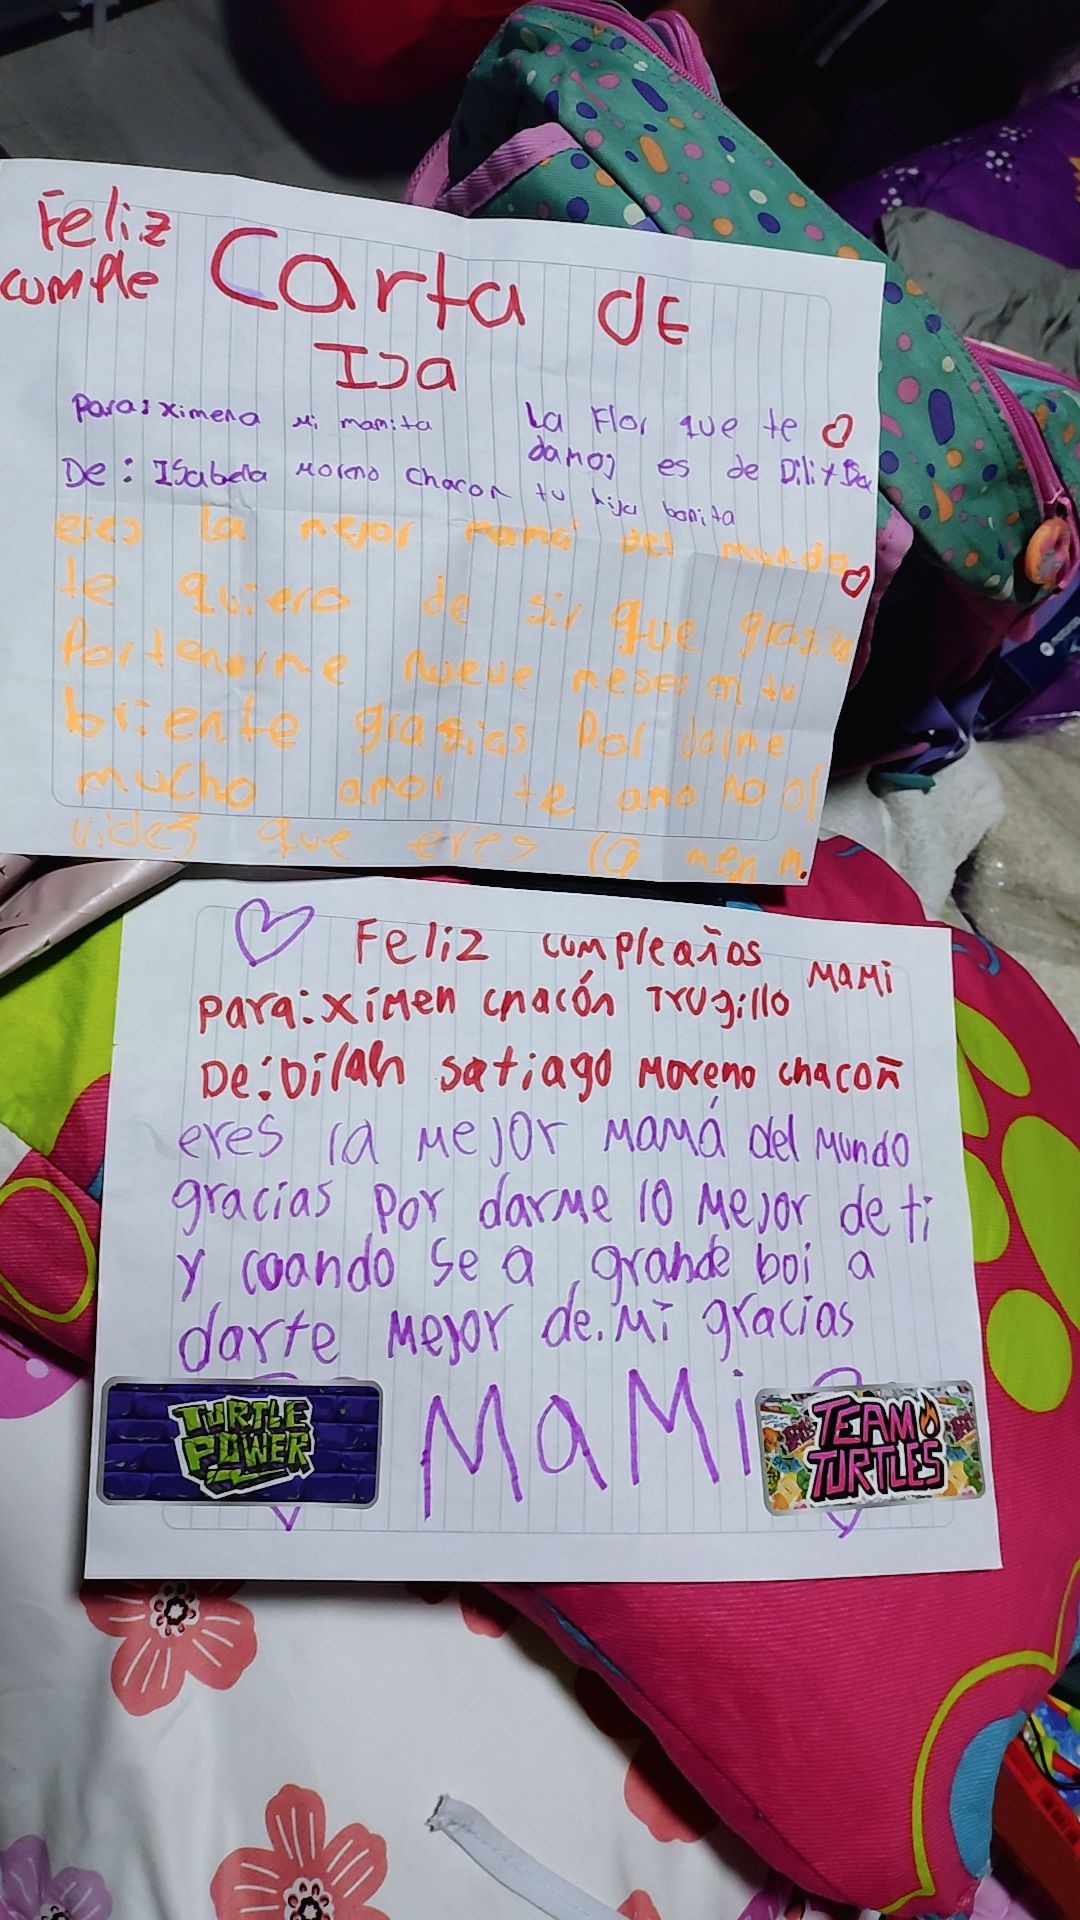 Feliz
cumple
Carta dE
IJa
Para: ximena mi mamita
De: ISabela Moreno Chacon tu hija bonita
La Flor que te
damos es de Dili y Isa
eres la mejor mamá del mundo
te quiero de sir que grasias
Por tenerme nueve meses en tu
briente grasias Por darme
mucho amor te amo no ol
vides que eres la mejor m.
Feliz cumpleaños MaMi
Para: Ximen chacón Trugillo
De: Dilan Satiago Moreno chacoñ
eres la Mejor Mamá del Mundo
gracias Por darme lo Mejor de ti
y cuando se a grande boi a
darte Mejor de. Mi gracias
MaMi
TURTLE
POWER
TEAM
TURTLES